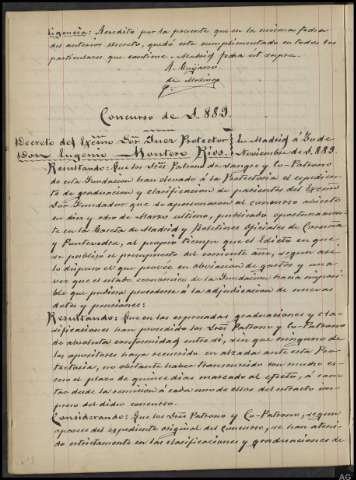 ligencia: Acredito por la presente que en la misma fecha
del anterior decreto, quedó este cumplimentado en todos los
particulares que contiene. Madrid fecha ut supra.
A.
de Molina
Concurso de 1.889.
Decreto del Excmo Sor Juez Protector
Don Eugenio Montero Rios.
En Madrid a 30 de
Noviembre de 1.889.
Resultando: Que los Sres Patrono de sangre y Co-Patrono
de esta Fundacion han elevado á la Protectoria el expedien-
te de graduacion y clasificacion de parientes del Excmo
Sor Fundador que se presentaron al concurso abierto
en dia y ocho de Marzo ultimo, publicado oportunamente
en la Gaceta de Madrid y Boletines Oficiales de Coruña
y Pontevedra, al propio tiempo que el Edicto en que
se publicó el presupuesto del corriente año, segun así
lo dispuso el que provee en abreviacion de gastos y una
vez que el estado economico de la Fundacion hacia imposi-
ble que pudiera procederse á la adjudicacion de nuevas
dotes y pensiones:
Resultando: Que en las expresadas graduaciones y cla-
sificaciones han procedido los Sres Patrono y Co-Patrono
de absoluta conformidad entre sí, sin que ninguno de
los opositores haya recurrido en alzada ante esta Pro-
tectoria, no obstante haber transcurrido con mucho ex-
ceso el plazo de quince dias marcado al efecto, á con-
tar desde la remision á cada uno de ellos del extracto im-
preso del dicho concurso.
Considerando: Que los Sres Patrono y Co-Patrono, segun
aparece del expediente original del Concurso, se han ateni-
do estrictamente en las clasificaciones y graduaciones de
AG